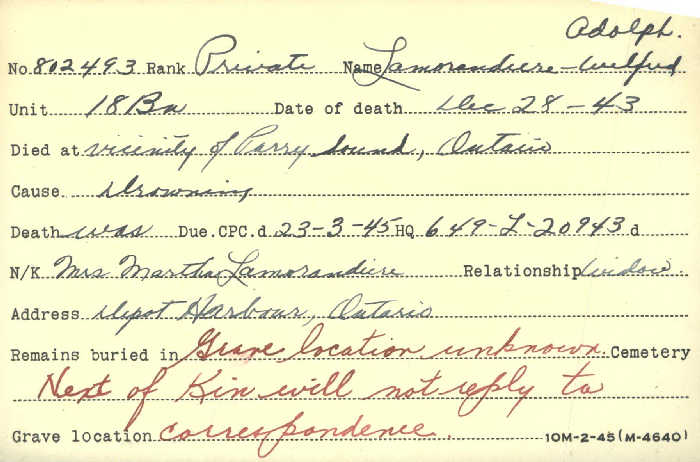 Adolph.
No. 802493 Rank Private Name Lamorandiere - Wilfred
Unit 18 Bn Date of death Dec 28-43
Died at vicinity of Parry Sound, Ontario
Cause Drowning
Death was Due. CPC. d 23-3-45 HQ 649-L-20943 d
N/K Mrs Martha Lamorandiere Relationship Widow
Address Depot Harbour, Ontario
Remains buried in Grave location unknown. Cemetery
Next of Kin will not reply to
Grave location correspondence. 10M-2-45 (M-4640)